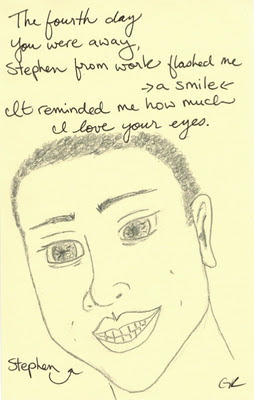 The fourth day
you were away,
Stephen from work flashed me
→a smile←
It reminded me how much
I love your eyes.
Stephen
GR